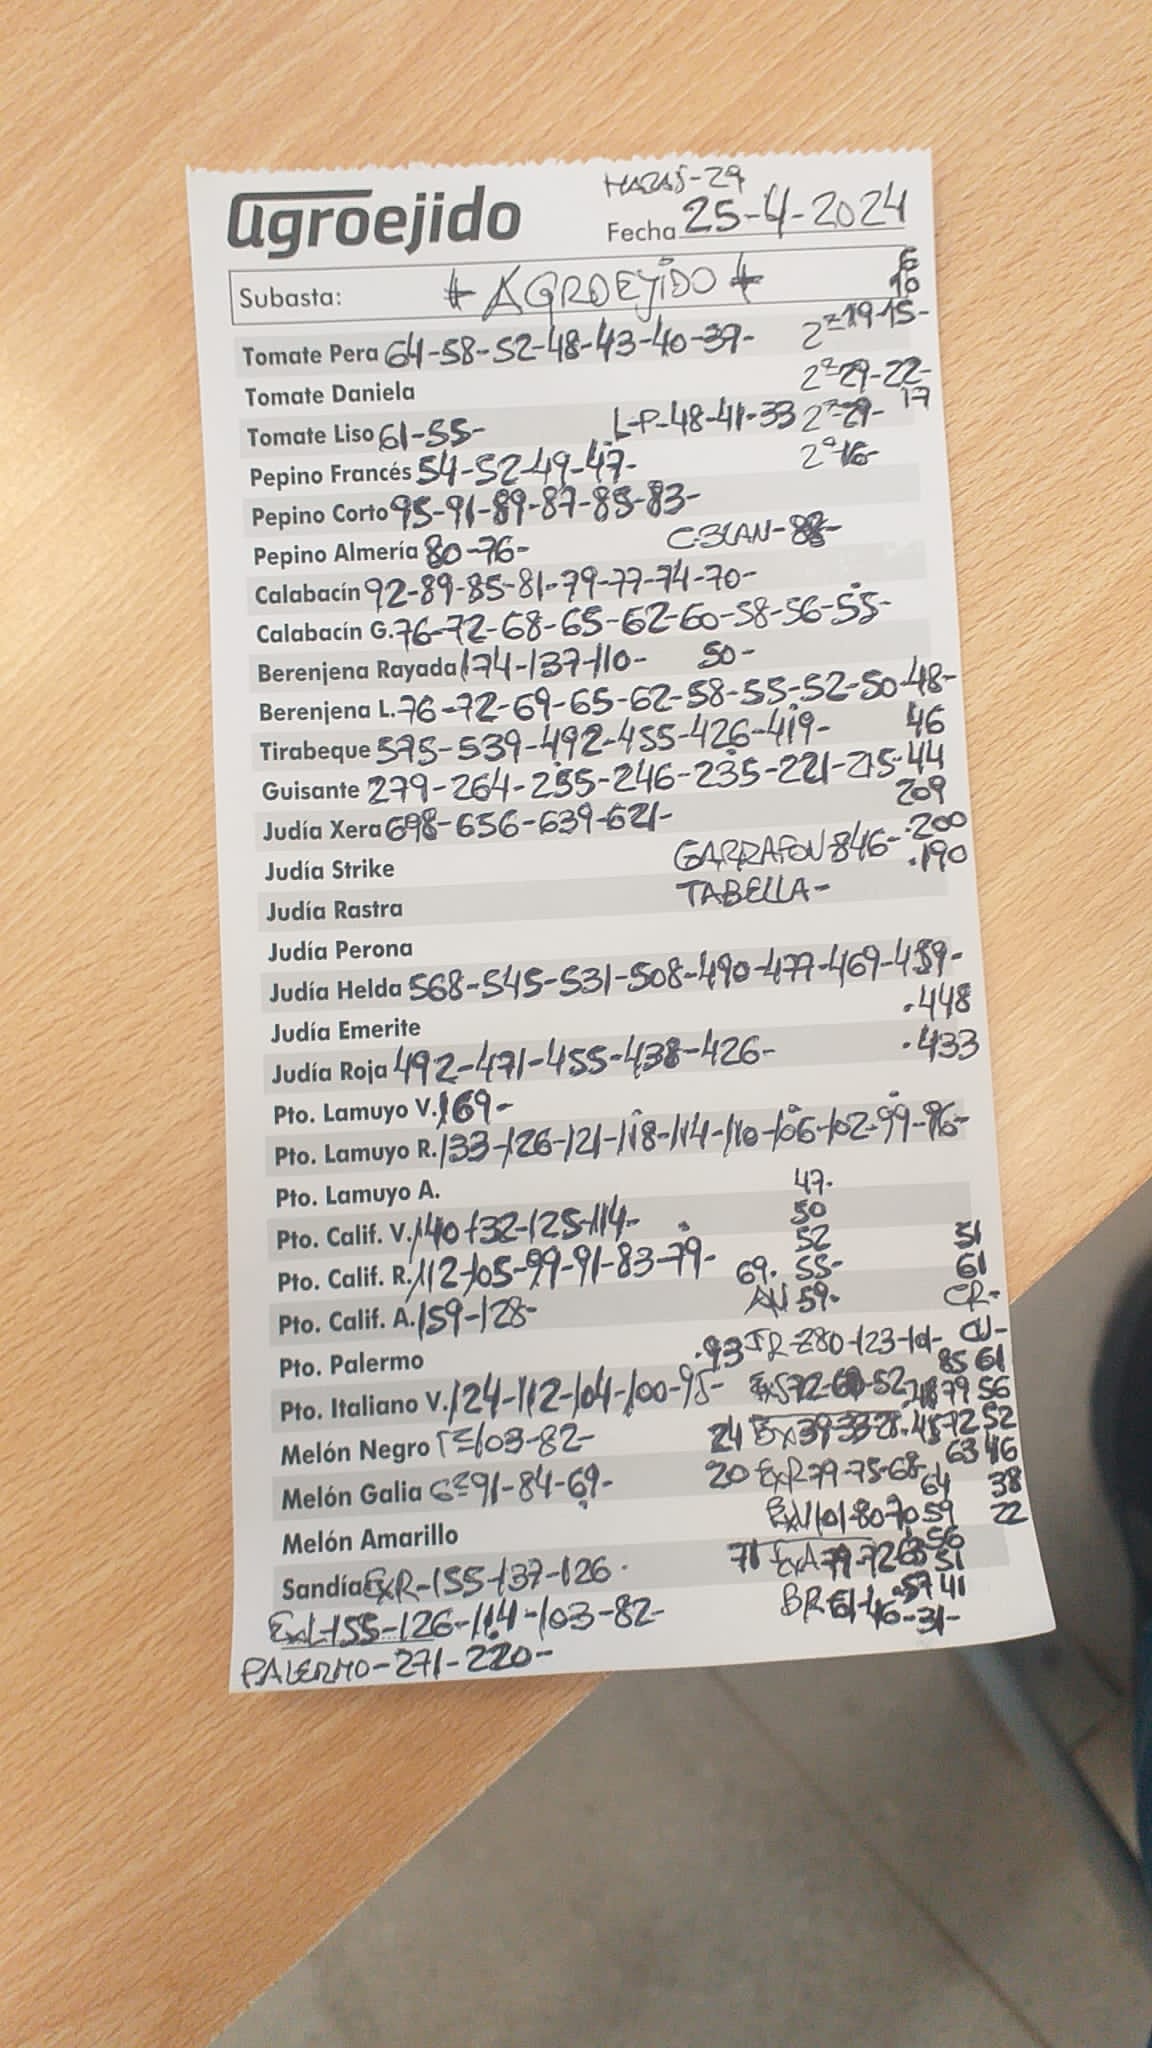 agroejido
Fecha 25-4-2024
Subasta: AGROEJIDO
6
10
Tomate Pera 64-58-52-48-43-40-39- 2ª-19-15-
Tomate Daniela 2ª-29-22-
17
Tomate Liso 61-55- L-P-48-41-33 2ª-29-
Pepino Francés 54-52-49-47- 2ª-16-
Pepino Corto 95-91-89-87-85-83-
Pepino Almería 80-76- C-BLAN-88-
Calabacín 92-89-85-81-79-77-74-70-
Calabacín G. 76-72-68-65-62-60-58-56-55-
Berenjena Rayada 174-137-110- 50-
Berenjena L. 76-72-69-65-62-58-55-52-50-48-
46
44
Tirabeque 595-539-492-455-426-419-
Guisante 279-264-255-246-235-221-215-
209
.200
.190
Judía Xera 698-656-639-621-
Judía Strike GARRAFON-846-
Judía Rastra TABELLA-
Judía Perona
Judía Helda 568-545-531-508-490-477-469-459-
.448
.433
Judía Emerite
Judía Roja 492-471-455-438-426-
Pto. Lamuyo V. 169-
Pto. Lamuyo R. 133-126-121-118-114-110-106-102-99-96-
Pto. Lamuyo A.
47.
50
52
Pto. Calif. V. 140-132-125-114-
Pto. Calif. R. 112-105-99-91-83-79- 69. 55-
51
61
Pto. Calif. A. 159-128- 59- CR-
Pto. Palermo .93 CU-
Pto. Italiano V. 124-112-104-100-95-
85 61
79 56
72 52
63 46
64 38
59 22
56
51
41
Melón Negro 103-82- 24
Melón Galia 91-84-69- 20 ExR 79-75-68-
Melón Amarillo
Sandía ExR-155-137-126. 71
ExL-155-126-114-103-82- BR-61-46-31-
PALERMO-271-220-